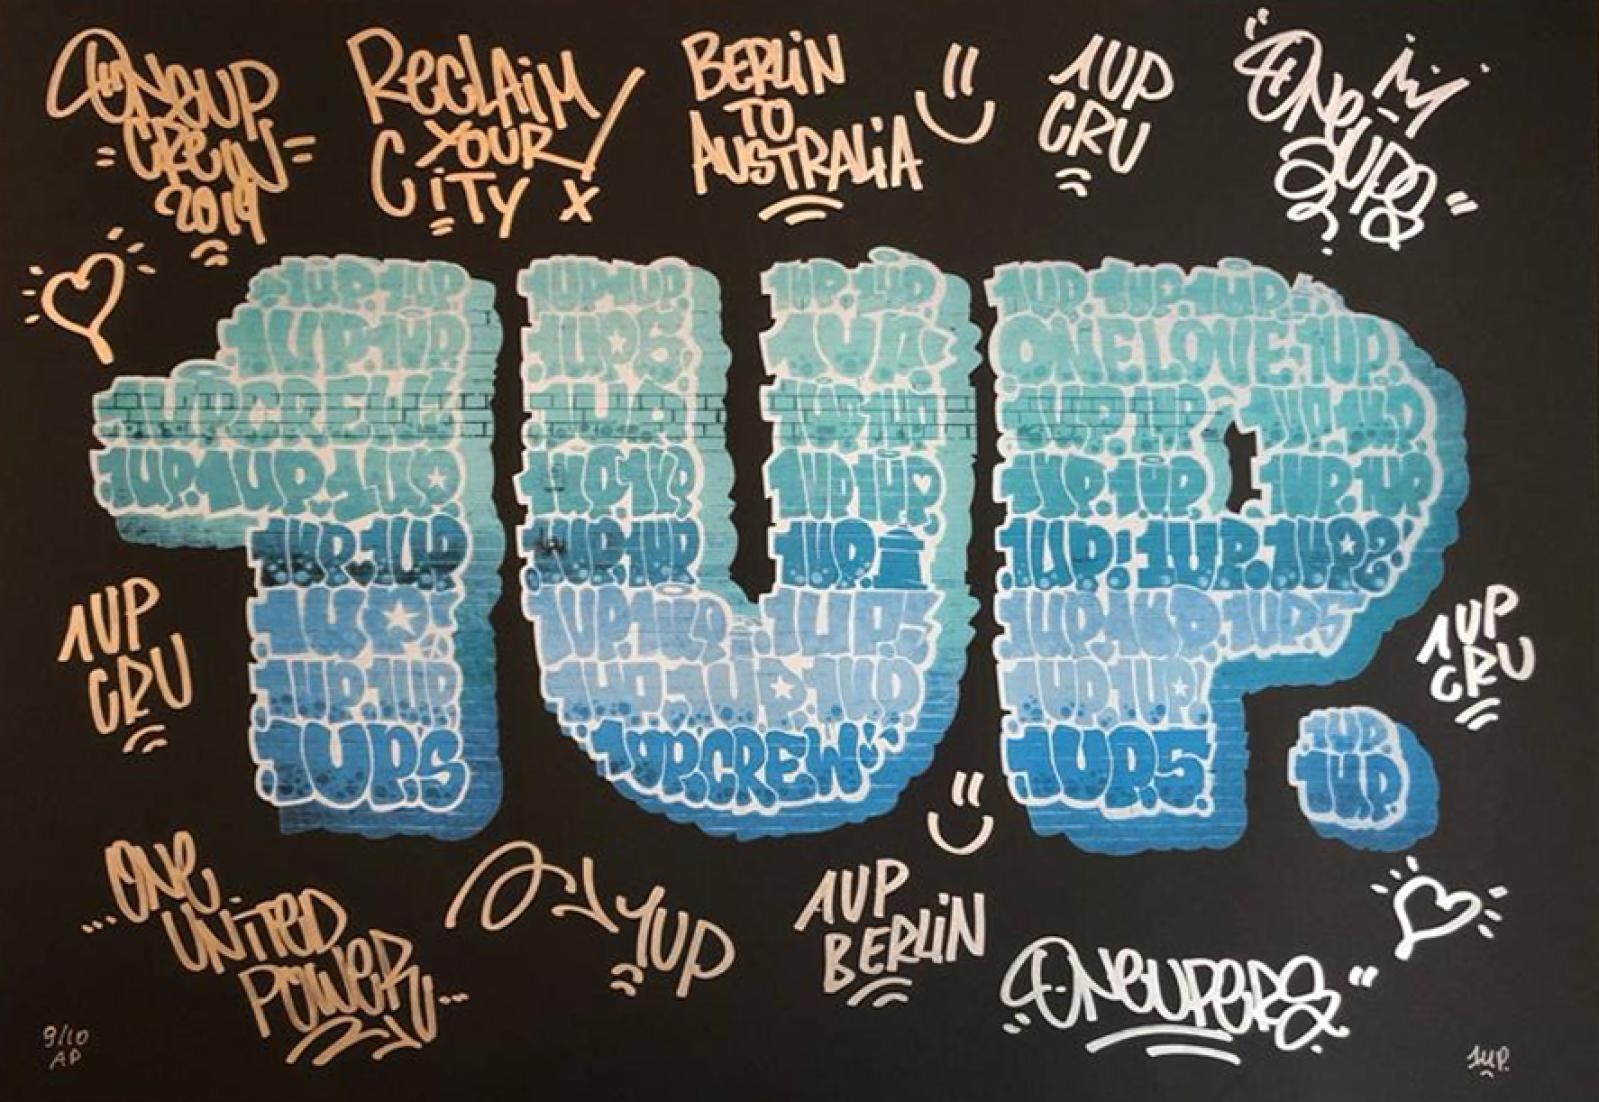 ONEUP
CREW
2019
RECLAIM
YOUR
CITY X
BERLIN
TO
AUSTRALIA
1UP
CRU
"ONE
UPS"
1UP.1UP
1UP.1UP
1UPCREW
1UP.1UP.1UP
1UP.1UP
1UP!
1UP.1UP
1UP.S
1UP.1UP.
1UPS.
1UP
1UP.1UP
1UP.1UP
1UP.1UP
1UP.1UP.1UP
1UP.CREW
1UP.1UP
1UP:
1UP.1UP
1UP.1UP
1UP.
1UP!
1UP.1UP.1UP.
ONELOVE.1UP.
1UP.1UP
1UP.1UP.
1UP.1UP.
1UP.1UP
1UP:1UP.1UPS
1UP.1UP.1UPS
1UP.1UP!
1UP.5.
1UP.
1UP.
1UP
CRU
1UP
CRU
...ONE
UNITED
POWER...
1UP
1UP
BERLIN
"ONEUPERS"
9/10
AP
1UP.